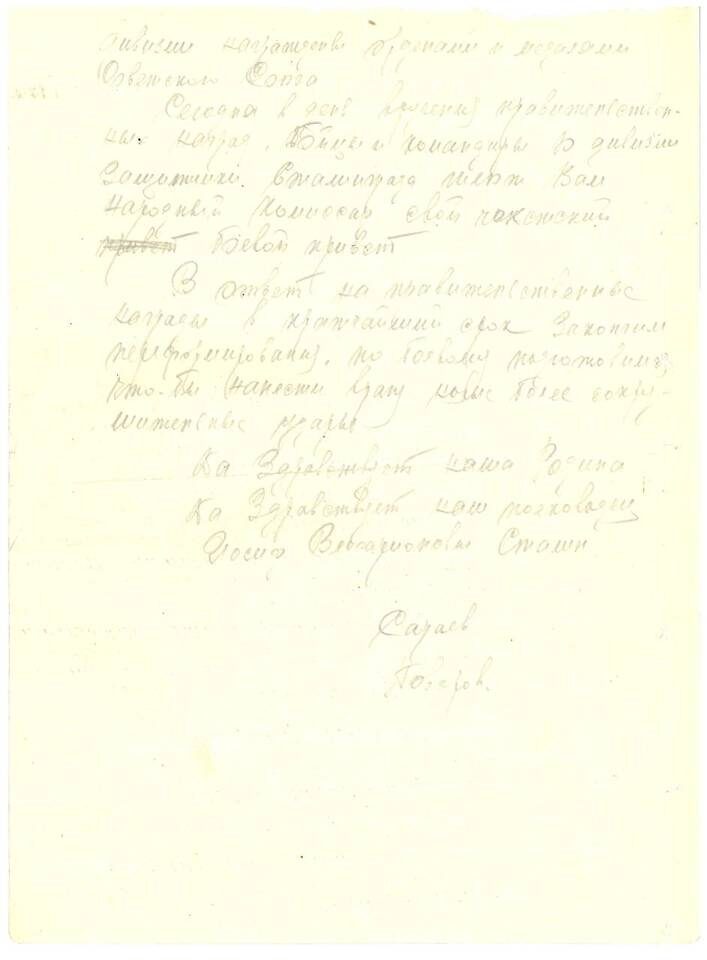 дивизии награждены орденами и медалями
Советского Союза
Сегодня в день вручения правительствен-
ных наград. Бойцы и командиры 10 дивизии
Защитники Сталинграда шлют Вам
народный Комиссар свой чекистский
привет боевой привет
В ответ на правительственные
награды в кратчайший срок закончим
переформирования, по боевому подготовимся,
что-бы нанести врагу новые более сокру-
шительные удары
Да Здравствует наша Родина
Да Здравствует наш полководец
Иосиф Виссарионович Сталин
Сараев